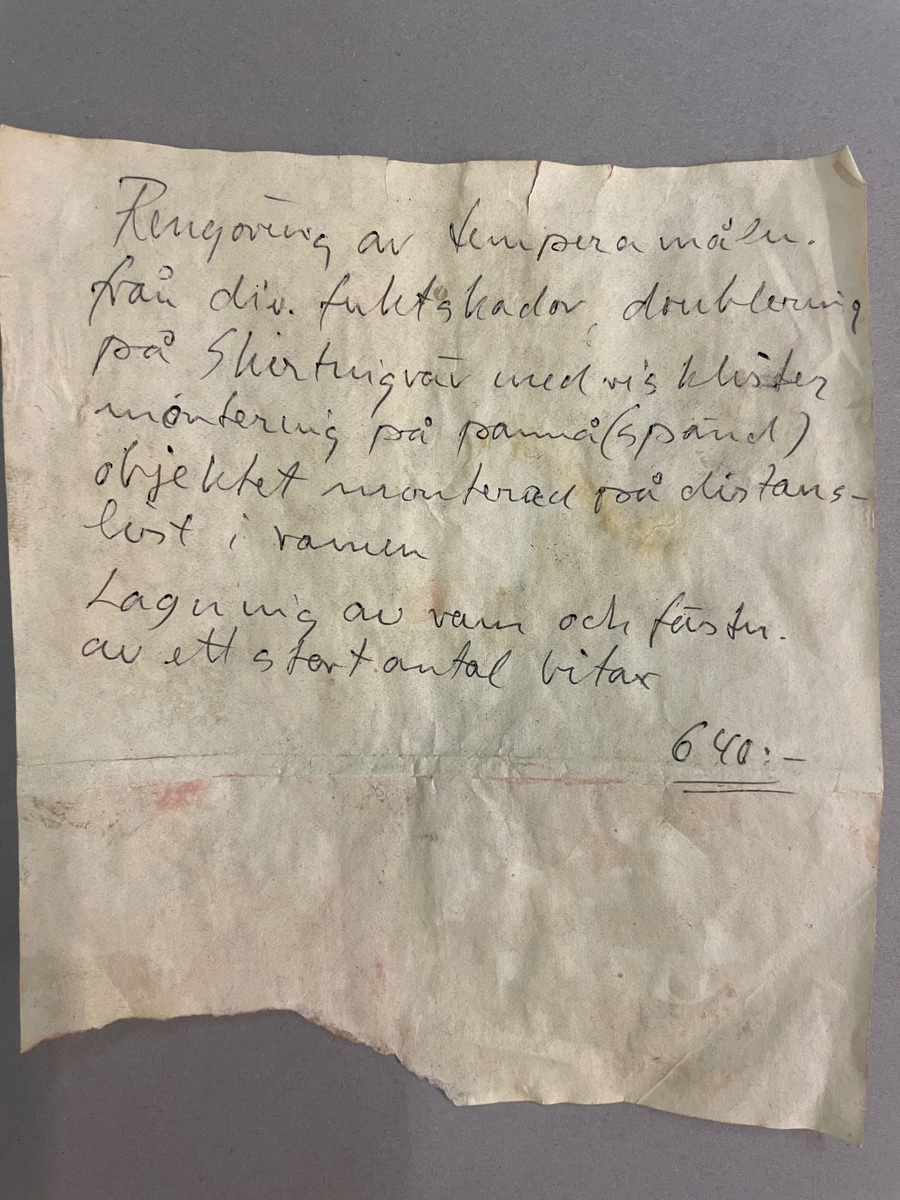 Rengöring av temperamåln.
från div. fuktskador, doublering
på Shirtingväv med vis klister
montering på pannå (spänd)
objektet monterad på distans-
list i ramen
Lagning av ram och fästn.
av ett stort antal bitar
640:-